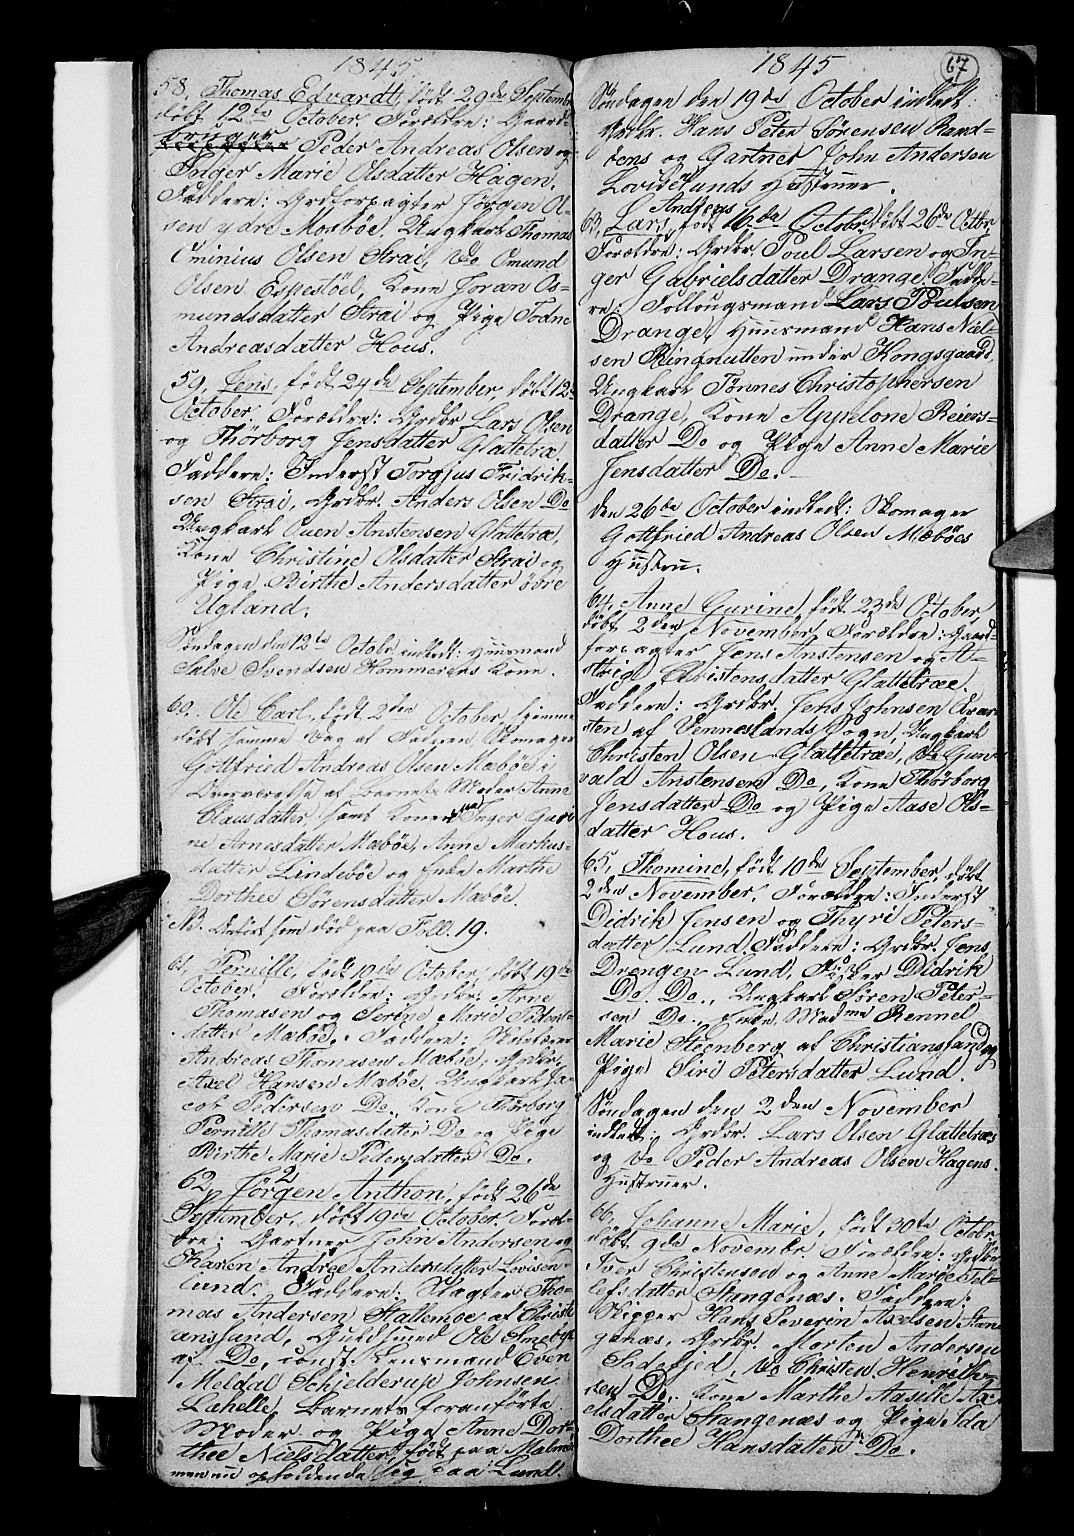 1845.
58, Thomas Edvardt, født 29de Septembr
døbt 12te October, Forældre: Gaard-
bruger Peder Andreas Olsen og
Tolger Marie Olsdatter Hagen.
Faddere: Grdforpagter Jørgen Ol-
sen ydre Mosbøe, Ungkarl Thomas
Ominius Olsen Strai, Do Omund
Olsen Espestøel, Kone Joran Os-
mundsdatter Strai og Pige Todne
Andreasdatter Hous.
59, Jens, født 24de September, døbt 12te
October, Forældre: Grdbr Lars Olsen
og Thørborg Jensdatter Glattetræ.
Faddere: Inderst Torgjus Fridrik-
sen Strai, Grdbr. Anders Olsen Do
Ungkarl Ouen Anstensen Glattetræ,
Kone Christine Olsdatter Strai og
Pige Birthe Andersdatter øvre
Ugland.
Søndagen den 12te Octobr. indledt: Huusmand
Salve Svendsen Hommerens Kone.
60, Ole Carl, født 2den October, hjemme
døbt samme Dag af Faderen, Skomager
Gottfried Andreas Olsen Mæbøe i
Overværelse af Barnets Moder Anne
Clausdatter samt Konerne Inger Guri
ne Arnesdatter Mæbøe, Anne Markus-
datter Lindebøe og Enke Marthe
Dorthee Sørensdatter Mæbøe.
NB. Anført som død paa Foll. 19.
61, Pernille, født 10de October, døbt 19de
October. Forældre: Grdbr. Arne
Thomasen og Serine Marie Peders-
datter Mæbøe. Faddere: Skolelærer
Andreas Thomasen Mæbøe, Grdbr.
Axel Hansen Mæbøe, Ungkarl Ja-
cob Pedersen Do., Kone Thørborg
Pernille Thomasdatter Do og Pige
Birthe Marie Pedersdatter Do.
62, Jørgen Anthon, født 26de
September, døbt 19de October. Foræl-
dre: Gartner John Andersen og
Karen Andrea Andersdatter Lovisen-
lund. Faddere: Slagter Tho-
mas Andersen Stallembe af Christi
ansand, Guldsmed Ole Smebye
af Do, const. Lensmand Even
Meldal Schjelderup Johnsen
Lahelle, Barnets foranførte
Moder og Pige Anne Dor-
thee Nielsdatter, født paa Malm-
møen nu opholdende sig paa Lund.
1845
67
Søndagen den 19de October indledt:
Grdbr. Hans Peter Sørensen Rand-
øens og Gartner John Andersen
Lovisenlunds Hustruer.
63, Lars Andreas, født 16de October, døbt 26de Octbr.
Forældre: Grdbr. Poul Larsen og In-
ger Gabrielsdatter Drange. Fadde-
re: Follougsmand Lars Poulsen
Drange, Huusmand Hans Niel-
sen Ringnutten under Kongsgaard,
Ungkarl Tønnes Christophersen
Drange, Kone Apelone Reiers-
datter Do og Pige Anne Marie
Jensdatter Do.
Den 26de October indledt: Skomager
Gottfried Andreas Olsen Mæbøes
Hustru.
64, Anne Gurine, født 23de October,
døbt 2den November, Forældre: Gaard-
forpagter Jens Anstensen og A-
strig Christensdatter Glattetræe.
Faddere: Grdbr. Jens Johnsen Kvar-
sten af Venneslands Sogn, Ungkarl
Christen Olsen Glattetræe, Do Gun-
vald Anstensen Do, Kone Thørborg
Jensdatter Do og Pige Aase Ols-
datter Hous.
65, Thomine, født 10de September, døbt
2den November, Forældre: Inderst
Didrik Jensen og Thyri Peters-
datter Lund, Faddere: Grdbr. Jens
Drengen Lund, Fisker Didrik
Do. Do., Ungkarl Søren Peter-
sen Do., Enke Madme Rennel
Marie Steenberg af Christiansand og
Pige Siri Petersdatter Lund.
Søndagen den 2den November
indledt: Grdbr. Lars Olsen Glattetræs
og Do Peder Andreas Olsen Hagens
Hustruer.
66, Johanne Marie, født 30te Octobr
døbt 9de Novembr. Forældre: Grdbr
Iver Christensen og Anne Marie Tel-
lefsdatter Stangenæs. Faddere:
Skipper Hans Severin Axelsen Stan
genæs, Grdbr. Morten Andersen
Sodefjed, Do Christen Henrik-
sen Do., Kone Marthe Aasille Ax-
elsdatter Stangenæs og Pige Ida
Dorthee Hansdatter Do.